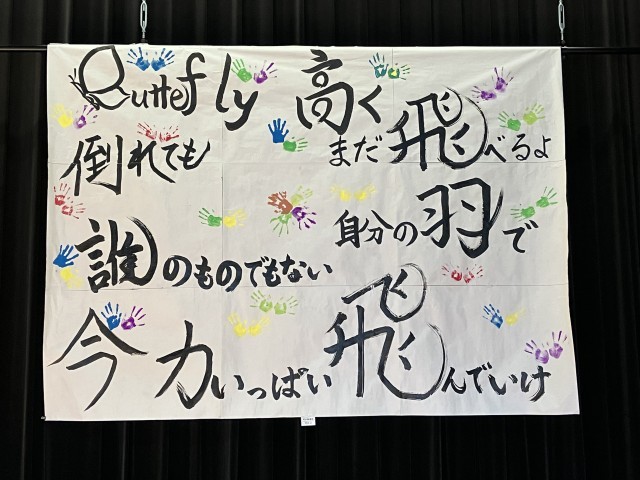 Butterfly 高く
倒れても まだ飛べるよ
誰のものでもない 自分の羽で
今 力いっぱい 飛んでいけ